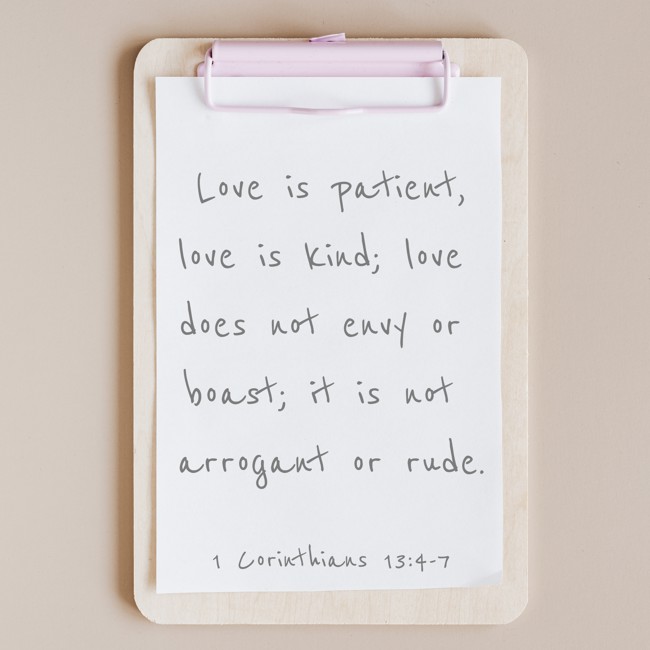 Love is patient,
love is kind; love
does not envy or
boast; it is not
arrogant or rude.
1 Corinthians 13:4-7